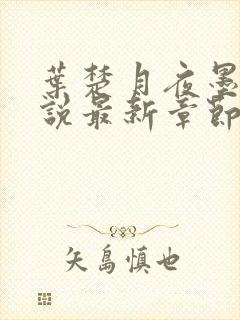 葉楚月夜墨
說最新章節
矢島慎也